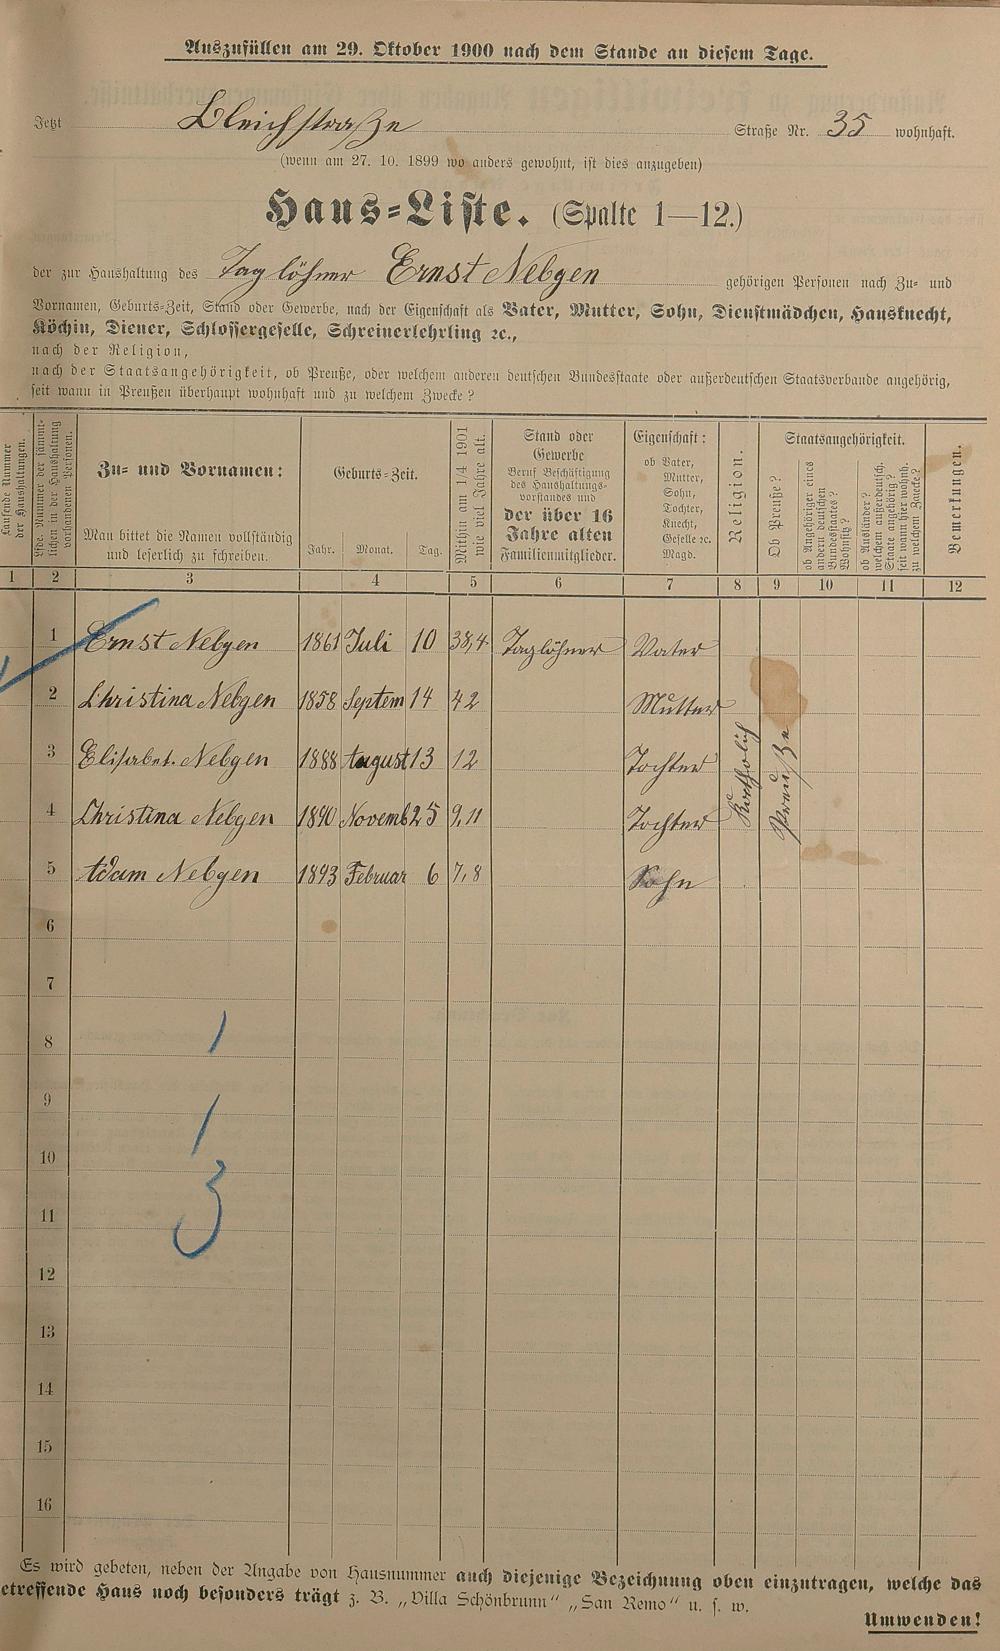 Auszufüllen am 29. Oktober 1900 nach dem Stande an diesem Tage.
Jetzt Bleichstraße Straße Nr. 35 wohnhaft.
(wenn am 27. 10. 1899 wo anders gewohnt, ist dies anzugeben)
Haus-Liste. (Spalte 1—12.)
der zur Haushaltung des Taglöhner Ernst Nebgen gehörigen Personen nach Zu- und
Vornamen, Geburts-Zeit, Stand oder Gewerbe, nach der Eigenschaft als Vater, Mutter, Sohn, Dienstmädchen, Hausknecht,
Köchin, Diener, Schlossergeselle, Schreinerlehrling ꝛc.,
nach der Religion,
nach der Staatsangehörigkeit, ob Preuße, oder welchem anderen deutschen Bundesstaate oder außerdeutschen Staatsverbande angehörig,
seit wann in Preußen überhaupt wohnhaft und zu welchem Zwecke?
Laufende Nummer
der Haushaltungen.
Lfde. Nummer der sämmt-
lichen in der Haushaltung
vorhandenen Personen.
Zu- und Vornamen:
Man bittet die Namen vollständig
und leserlich zu schreiben.
Geburts-Zeit.
Jahr. Monat. Tag.
Mithin am 1/4 1901
wie viel Jahre alt.
Stand oder
Gewerbe
Beruf Beschäftigung
des Haushaltungs-
vorstandes und
der über 16
Jahre alten
Familienmitglieder.
Eigenschaft:
ob Vater,
Mutter,
Sohn,
Tochter,
Knecht,
Geselle ꝛc.
Magd.
Religion.
Staatsangehörigkeit.
Ob Preuße?
ob Angehöriger eines
andern deutschen
Bundesstaates?
Wohnsitz?
ob Ausländer?
welchem außerdeutsch.
Staate angehörig?
seit wann hier wohnh.
zu welchem Zwecke?
Bemerkungen.
1 2 3 4 5 6 7 8 9 10 11 12
1 Ernst Nebgen 1861 Juli 10 38,4 Taglöhner Vater
2 Christina Nebgen 1858 Septem 14 42 Mutter
3 Elisabet. Nebgen 1888 August 13 12 Tochter
4 Christina Nebgen 1890 Novemb 25 9,11 Tochter
5 Adam Nebgen 1893 Februar 6 7,8 Sohn
Katholich
Preuße
6
7
8
1
9
1
10
3
11
12
13
14
15
16
Es wird gebeten, neben der Angabe von Hausnummer auch diejenige Bezeichnung oben einzutragen, welche das
etreffende Haus noch besonders trägt z. B. „Villa Schönbrunn" „San Remo" u. s. w.
Umwenden!